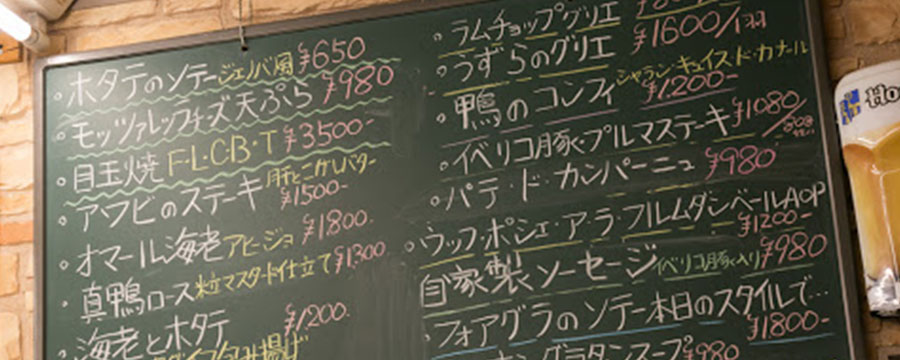 ・ホタテのソテージェノバ風 ¥650
・モッツァレッラチーズ天ぷら ¥980
・目玉焼 F・L・C・B・T ¥3500-
・アワビのステーキ ¥1500-
・オマール海老アヒージョ ¥1800.
・真鴨ロース粒マスタード仕立て ¥1300
・海老とホタテ ¥1200.
包み揚げ
・ラムチョップグリエ
・うずらのグリエ ¥1600/1羽
・鴨のコンフィ シャラン・キュイス・ド・カナール ¥1200-
・イベリコ豚・プルマステーキ ¥1080/
・パテ・ド・カンパーニュ ¥980
・ウッフ・ポシェ・ア・ラ・フルムダンベールAOP ¥1200-
自家製ソーセージ イベリコ豚入り ¥980
・フォアグラのソテー本日のスタイルで… ¥1800-
グラタンスープ ¥980
Ho